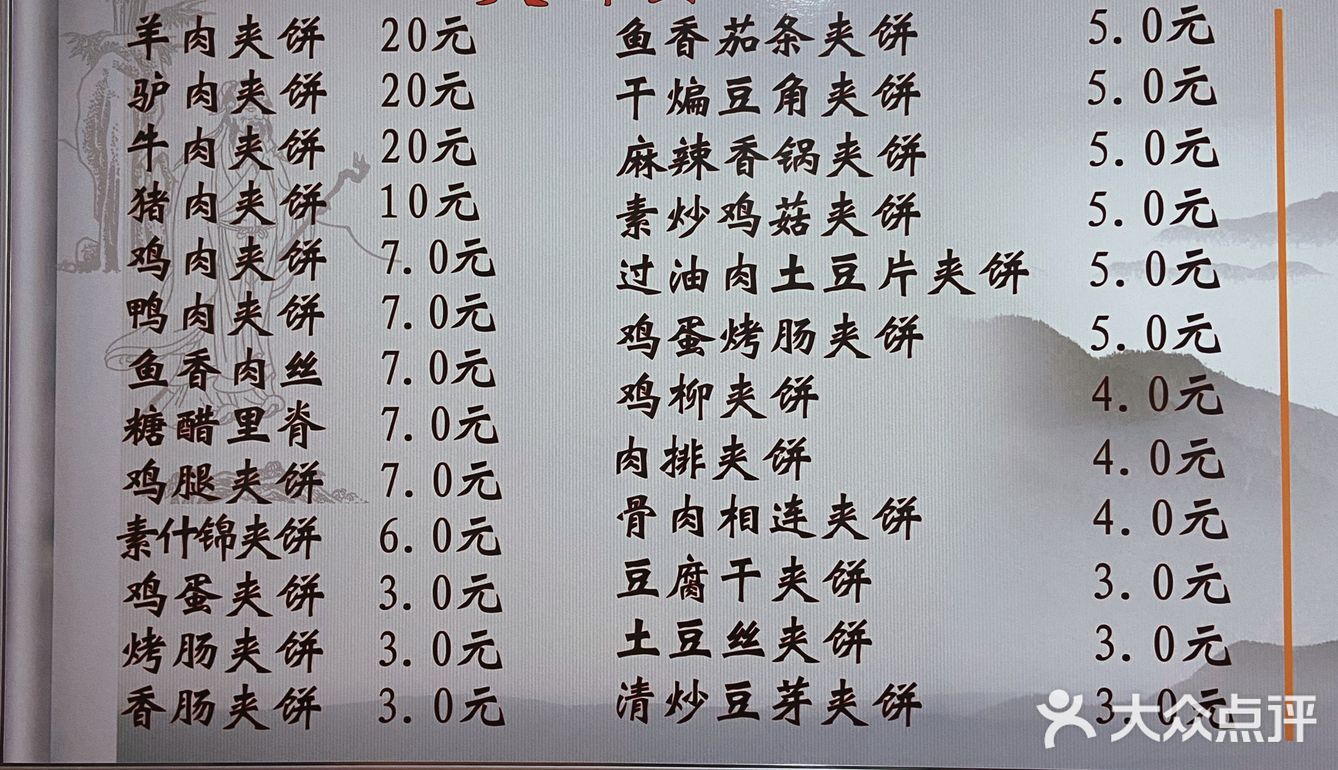 羊肉夹饼 20元
驴肉夹饼 20元
牛肉夹饼 20元
猪肉夹饼 10元
鸡肉夹饼 7.0元
鸭肉夹饼 7.0元
鱼香肉丝 7.0元
糖醋里脊 7.0元
鸡腿夹饼 7.0元
素什锦夹饼 6.0元
鸡蛋夹饼 3.0元
烤肠夹饼 3.0元
香肠夹饼 3.0元
鱼香茄条夹饼 5.0元
干煸豆角夹饼 5.0元
麻辣香锅夹饼 5.0元
素炒鸡菇夹饼 5.0元
过油肉土豆片夹饼 5.0元
鸡蛋烤肠夹饼 5.0元
鸡柳夹饼 4.0元
肉排夹饼 4.0元
骨肉相连夹饼 4.0元
豆腐干夹饼 3.0元
土豆丝夹饼 3.0元
清炒豆芽夹饼 3.0元
大众点评